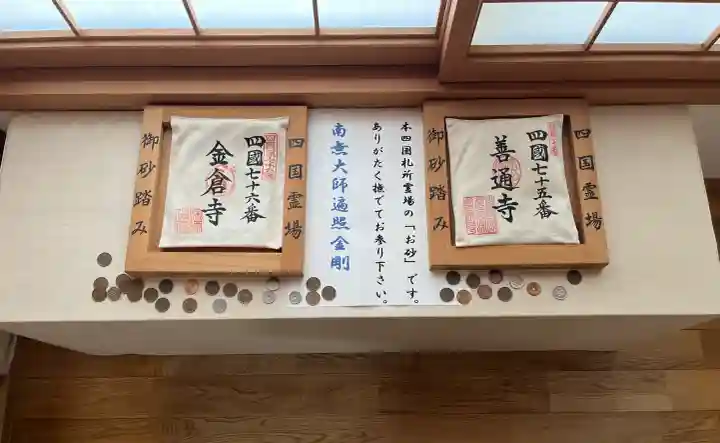 四国霊場
四國七十五番
善通寺
御砂踏み
本四国札所霊場の「お砂」です。
ありがたく撫でてお参り下さい。
南無大師遍照金剛
四国霊場
四國七十六番
金倉寺
御砂踏み